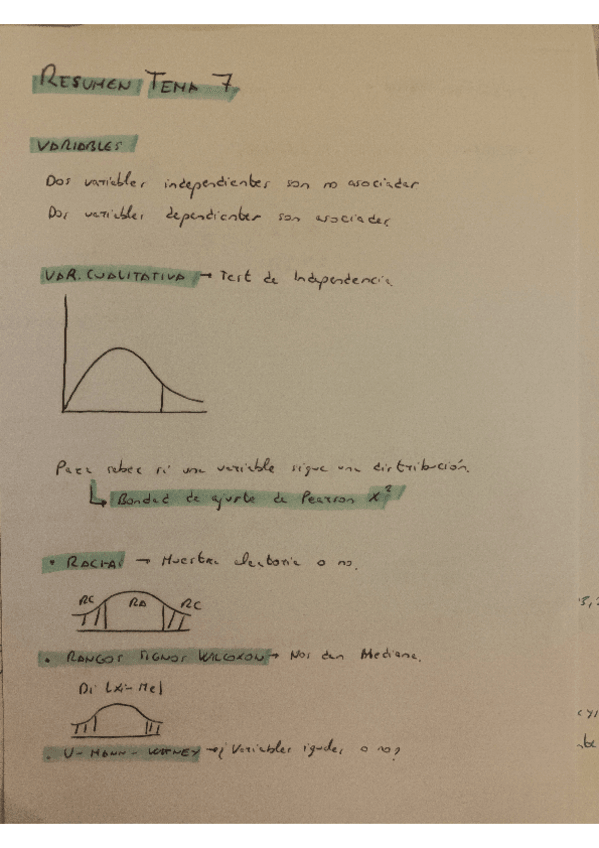 RESUMEN TEMA 7
VARIABLES
Dos variables independientes son no asociadas
Dos variables dependientes son asociadas
VAR. CUALITATIVA → Test de Independencia
Para saber si una variable sigue una distribución.
↳ Bondad de ajuste de Pearson X²
• RACHAS → Muestra aleatoria o no.
RC RA RC
• RANGOS SIGNOS WILCOXON → Nos dan Mediana.
Di |xi - Me|
• U - MANN - WITNEY → ¿Variables iguales o no?